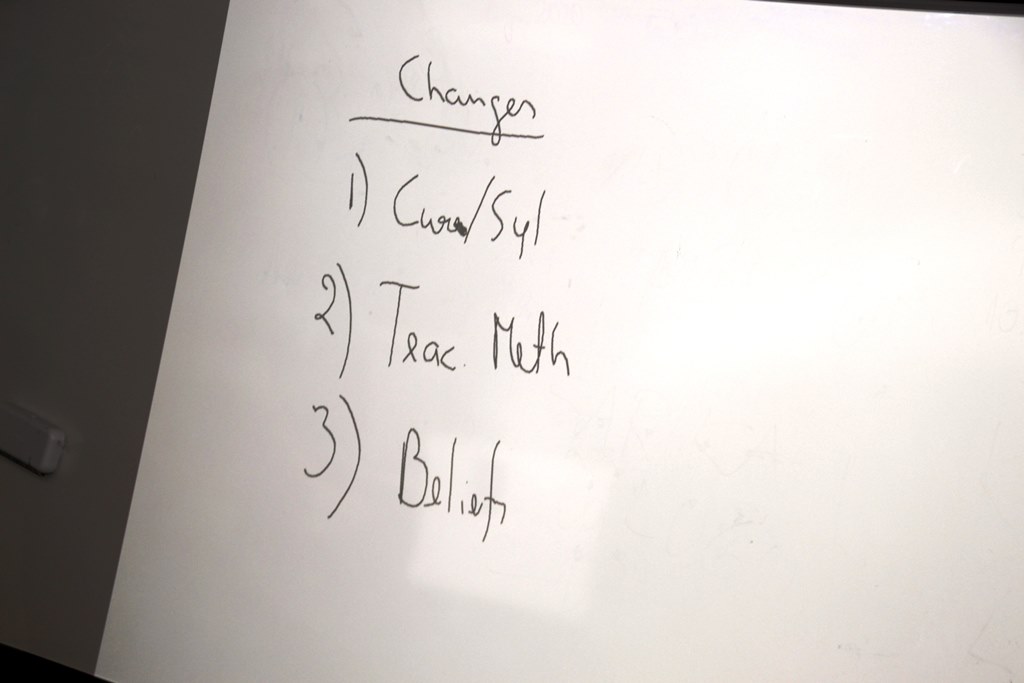 Changes
1) Curr/Syl
2) Teac. Meth
3) Beliefs